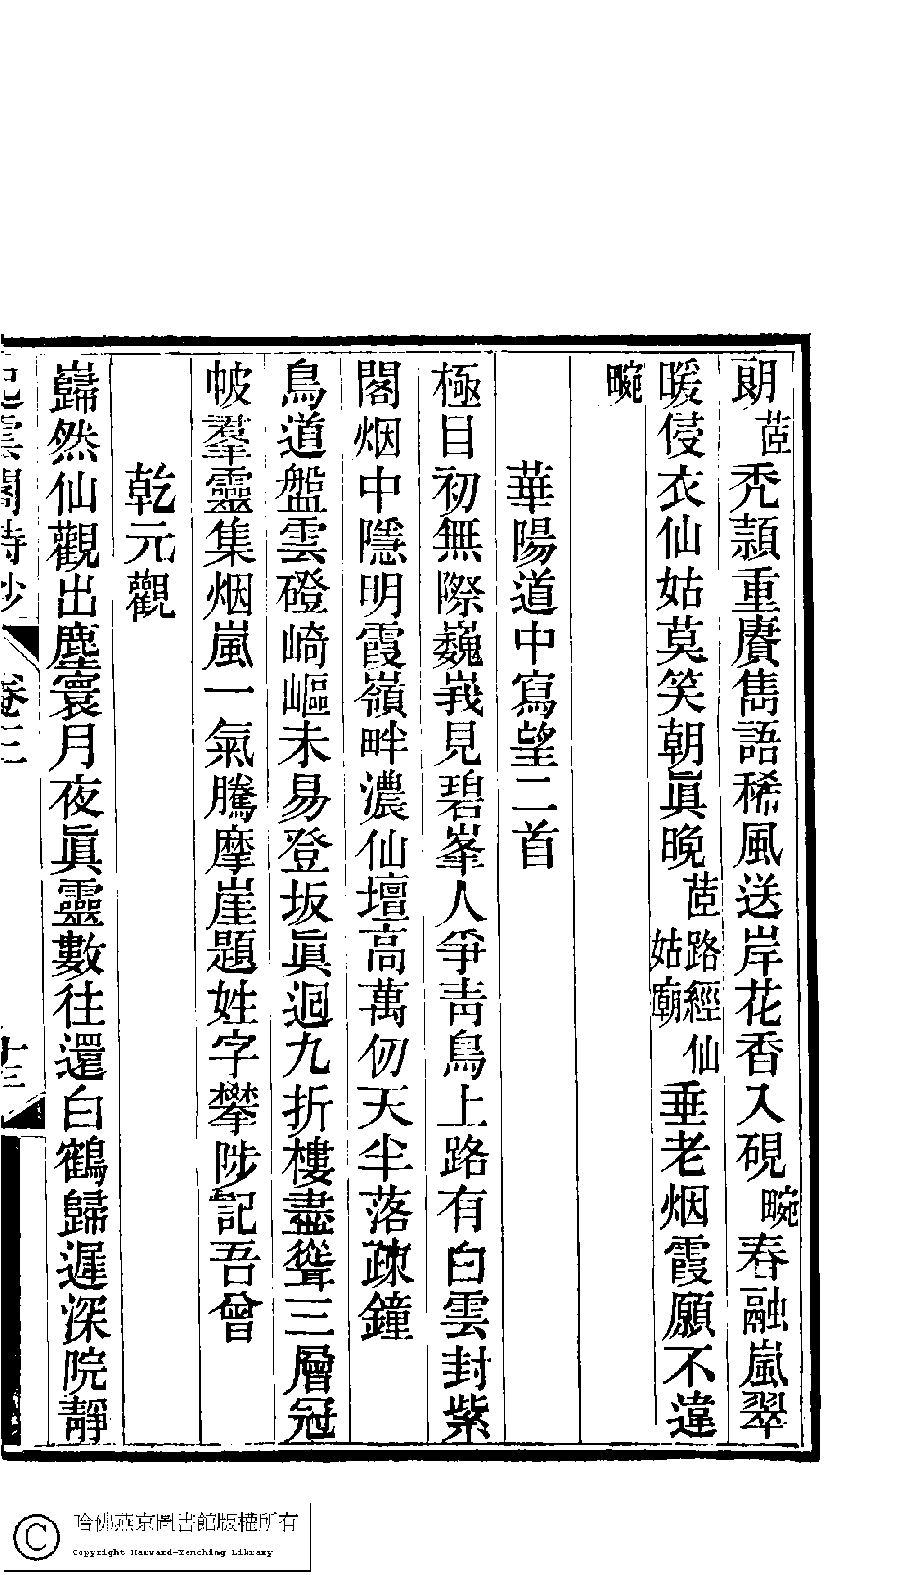 朗茝禿頴重賡雋語稀風送岸花香入硯畹春融嵐翠
暖侵衣仙姑莫笑朝眞晚茝路經仙姑廟垂老烟霞願不違
畹
華陽道中寫望二首
極目初無際巍峩見碧峯人爭靑鳥上路有白雲封紫
閣烟中隱明霞嶺畔濃仙壇高萬仞天半落疎鐘
鳥道盤雲磴崎嶇未易登坂眞迴九折樓盡聳三層冠
帔羣靈集烟嵐一氣騰摩崖題姓字攀陟記吾曾
乾元觀
巋然仙觀出塵寰月夜眞靈數往還白鶴歸遲深院靜
雲閣詩鈔 卷三 十三
哈佛燕京圖書館版權所有
Copyright Harvard-Yenching Library